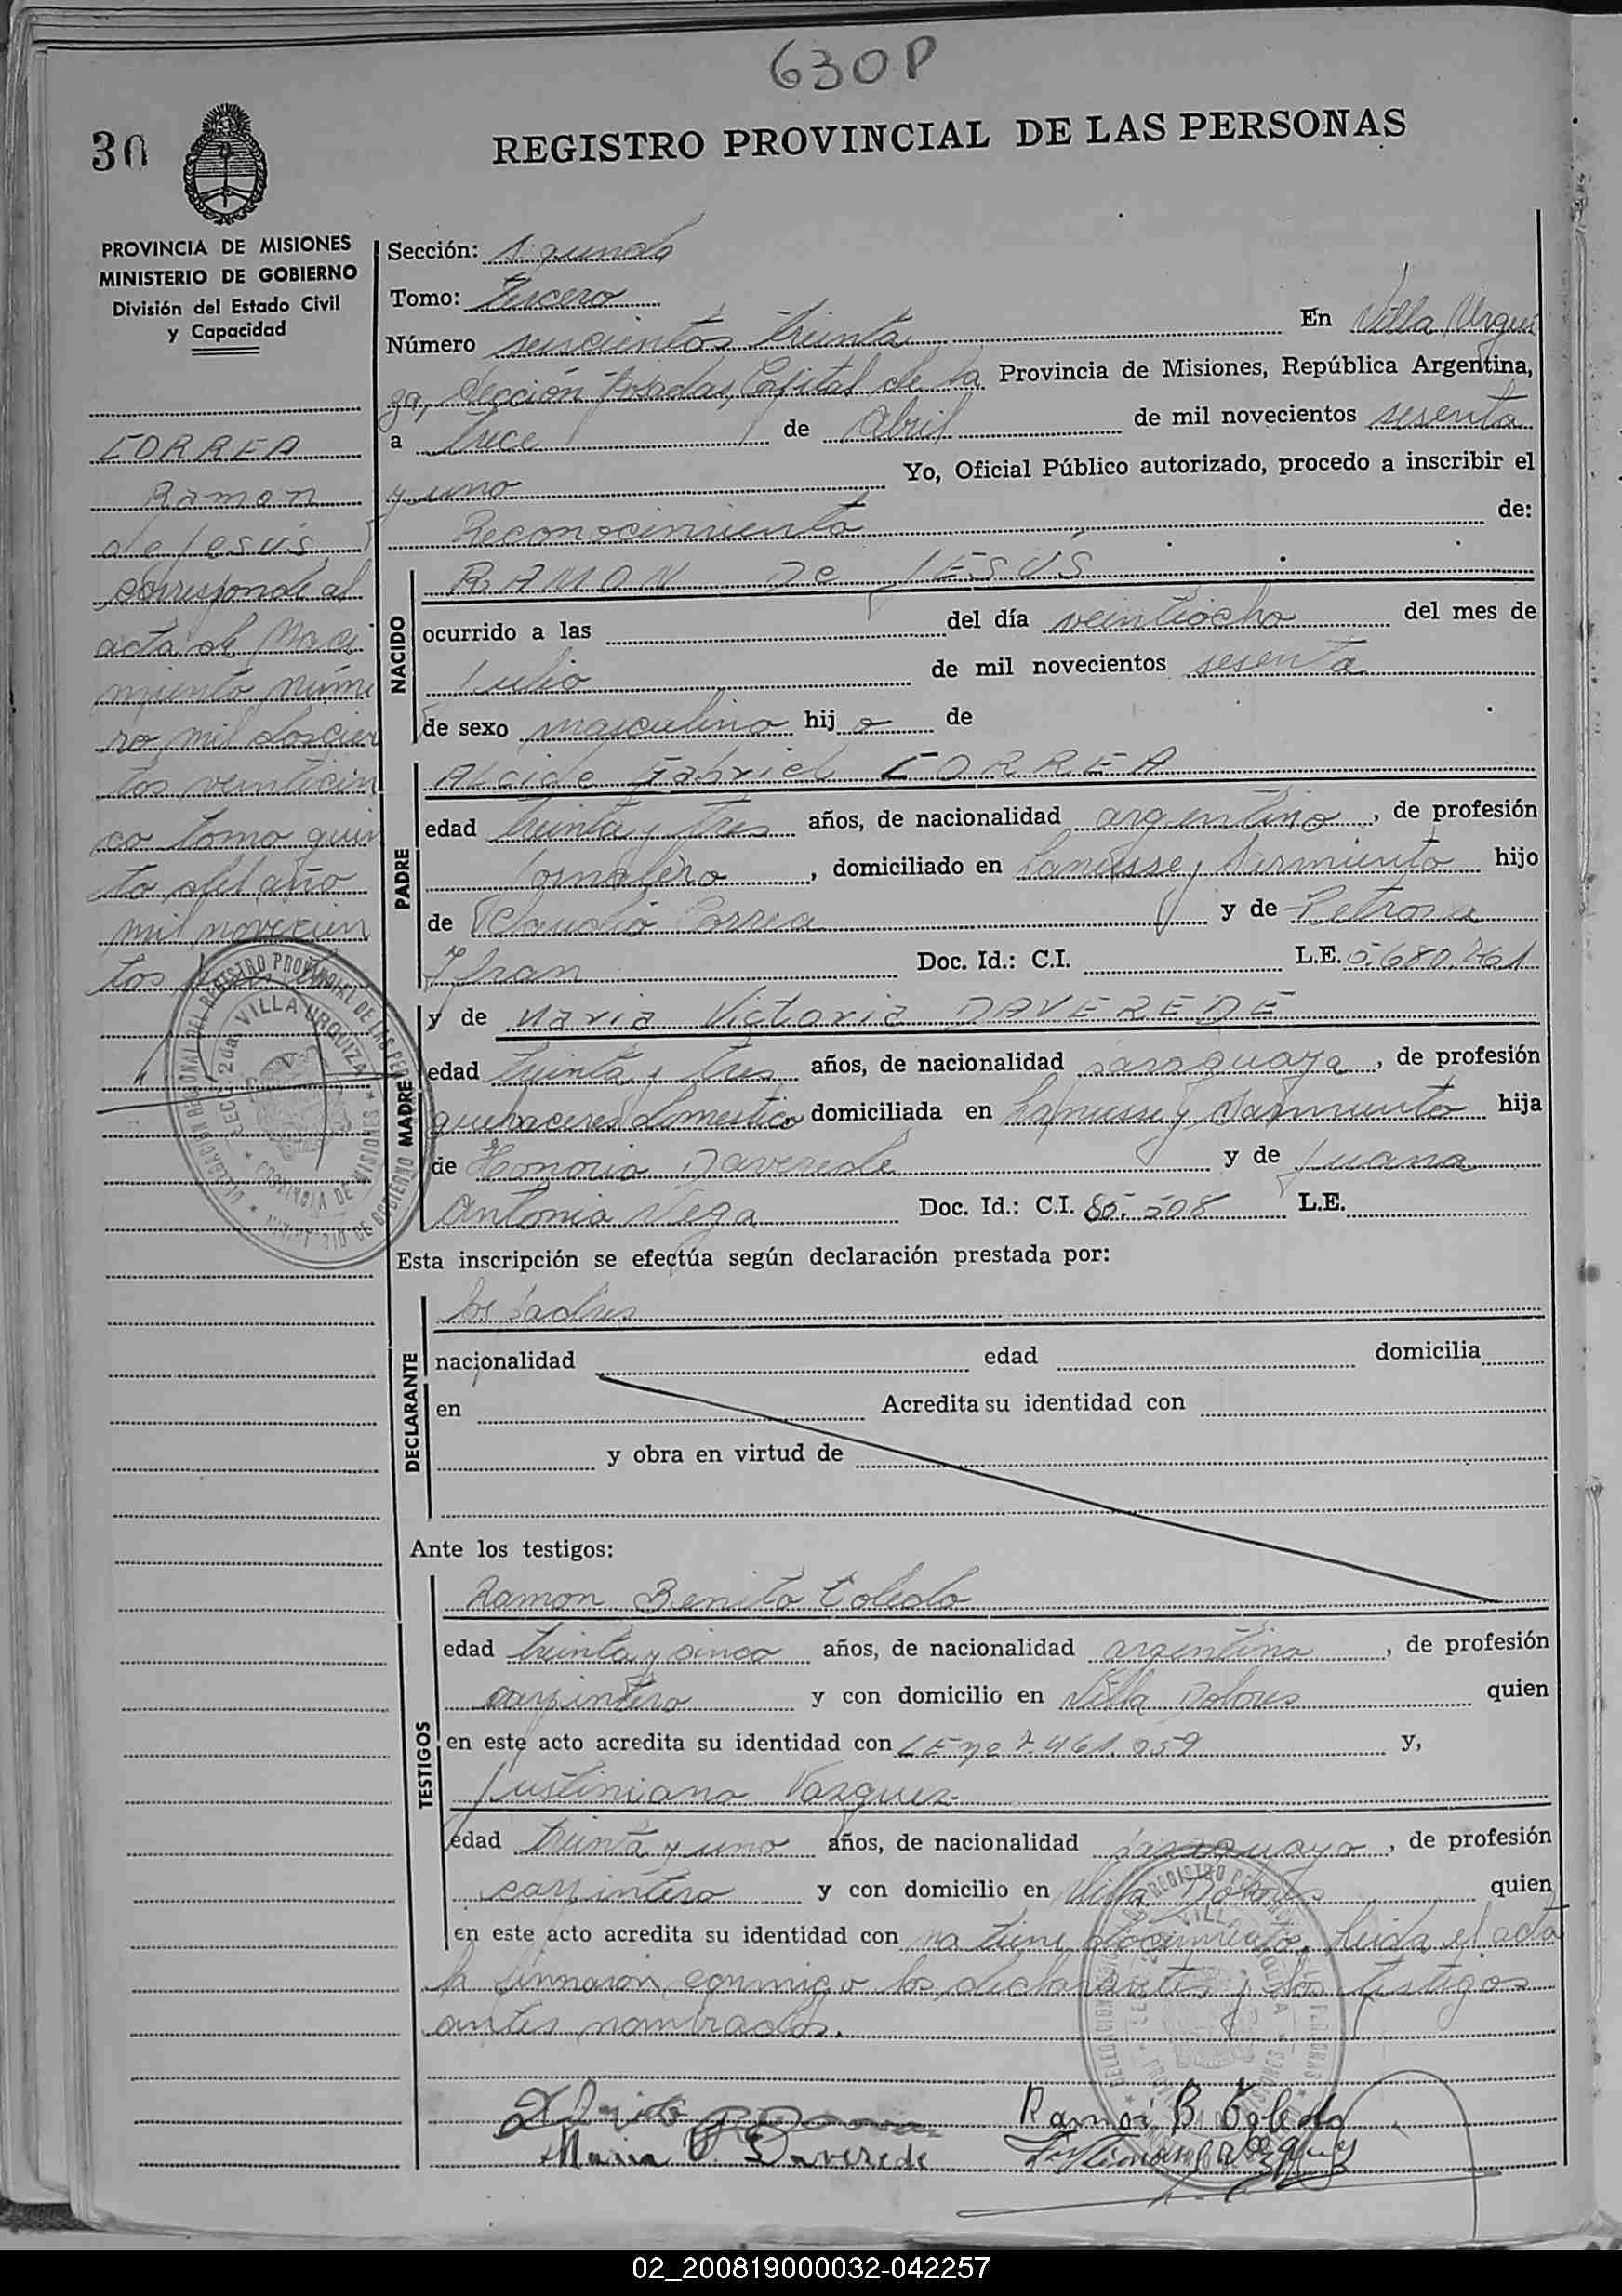 630P
30
REGISTRO PROVINCIAL DE LAS PERSONAS
PROVINCIA DE MISIONES
MINISTERIO DE GOBIERNO
División del Estado Civil
y Capacidad
CORREA
Ramon
de Jesús
corresponde al
acta de Naci
miento núme
ro mil doscien
tos veinticin
co tomo quin
to del año
mil novecien
tos
Sección: Segunda
Tomo: Tercero
Número seiscientos treinta En Villa Urqui
za, Sección Posadas, Capital de la Provincia de Misiones, República Argentina,
a trece de Abril de mil novecientos sesenta
y uno Yo, Oficial Público autorizado, procedo a inscribir el
Reconocimiento de:
NACIDO
RAMON De JESÚS
ocurrido a las del día veintiocho del mes de
Julio de mil novecientos sesenta
de sexo masculino hijo de
PADRE
Alcide Gabriel CORREA
edad treinta y tres años, de nacionalidad argentino, de profesión
Jornalero, domiciliado en Lanusse y Sarmiento hijo
de Claudio Correa y de Petrona
Doc. Id.: C.I. L.E. 5.680.761
MADRE
y de Maria Victoria DAVEREDE
edad treinta y tres años, de nacionalidad paraguaya, de profesión
quehaceres domestico domiciliada en Lanusse y Sarmiento hija
de Honorio Daverede y de Juana
Antonia Vega Doc. Id.: C.I. 85.508 L.E.
Esta inscripción se efectúa según declaración prestada por:
DECLARANTE
los padres
nacionalidad edad domicilia
en Acredita su identidad con
y obra en virtud de
Ante los testigos:
TESTIGOS
Ramon Benito Toledo
edad treinta y cinco años, de nacionalidad argentina, de profesión
carpintero y con domicilio en Villa Dolores quien
en este acto acredita su identidad con LE nº 7.461.059 y,
Justiniano Vazquez
edad treinta y uno años, de nacionalidad paraguayo, de profesión
carpintero y con domicilio en Villa Dolores quien
en este acto acredita su identidad con no tiene documento. Leida el acta
la firmaron conmigo los declarantes y los testigos
antes nombrados.
Ramón B. Toledo
Maria V. Daverede
VILLA URQUIZA
02_200819000032-042257